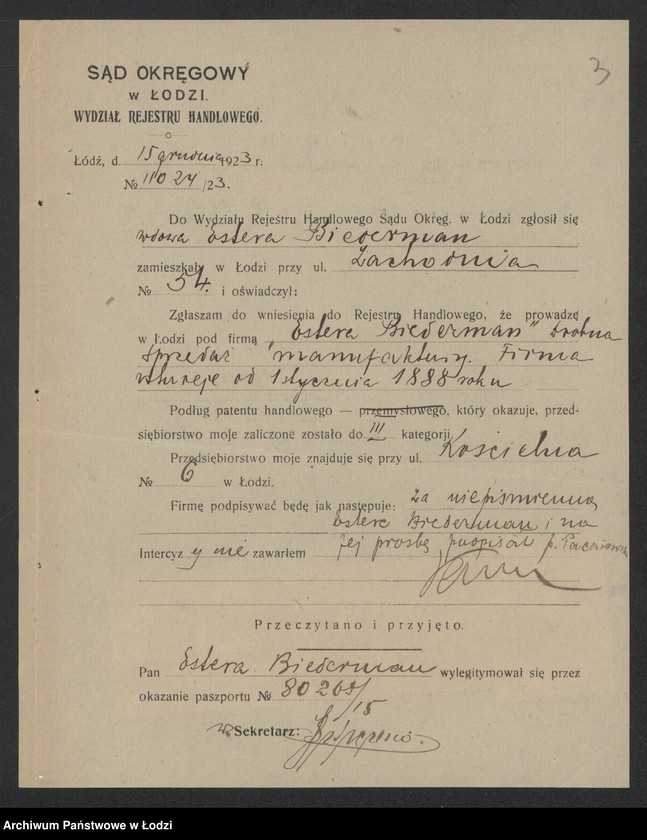 3
SĄD OKRĘGOWY
w ŁODZI.
WYDZIAŁ REJESTRU HANDLOWEGO.
Łódź, d. 15 grudnia 1923 r.
№ 11024/23.
Do Wydziału Rejestru Handlowego Sądu Okręg. w Łodzi zgłosił się
wdowa Estera Biederman
zamieszkały w Łodzi przy ul. Zachodnia
№ 54. i oświadczył:
Zgłaszam do wniesienia do Rejestru Handlowego, że prowadzę
w Łodzi pod firmą „Estera Biederman" drobna
sprzedaż manufaktury. Firma
istnieje od 1 stycznia 1888 roku
Podług patentu handlowego — przemysłowego, który okazuje, przed-
siębiorstwo moje zaliczone zostało do III kategorji.
Przedsiębiorstwo moje znajduje się przy ul. Kościelna
№ 6 w Łodzi.
Firmę podpisywać będę jak następuje: za niepiśmienną
Esterę Biederman i na
Intercyzy nie zawarłem jej prośbę podpisał p.
Przeczytano i przyjęto.
Pan Estera Biederman wylegitymował się przez
okazanie paszportu № 80268/15
w. Sekretarz:
Archiwum Państwowe w Łodzi